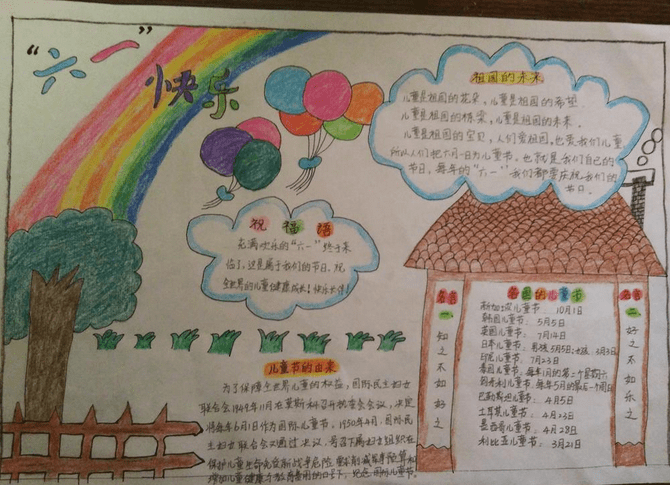 “六一”
快乐
祖国的未来
儿童是祖国的花朵，儿童是祖国的希望
儿童是祖国的栋梁，儿童是祖国的未来。
儿童是祖国的宝贝，人们爱祖国，也爱我们儿童
所以人们把六月一日为儿童节。也就是我们自己的
节日，每年的“六一”，我们都要庆祝我们的
节日。
祝福语
充满欢乐的“六一”终于来
临了，这是属于我们的节日，祝
全世界的儿童健康成长！快乐
儿童节的由来
为了保障全世界儿童的权益，国际民主妇女
联合会1949年11月在莫斯科召开执委会议，决定
将每年6月1日作为国际儿童节。1950年4月，国际民
主妇女联合会又通过决议，号召下属妇女组织在
保护儿童生命免受新战争危险
增加儿童健康与教育费用的口号下，纪念国际儿童节。
名言
一：
知之不如好之
各国的儿童节
新加坡儿童节： 10月1日
韩国儿童节： 5月5日
英国儿童节： 7月14日
日本儿童节：男孩5月5日；女孩：3月3日
印度儿童节： 7月23日
泰国儿童节：每年1月的第二个星期六
哥伦比亚儿童节：
巴勒斯坦儿童节： 4月5日
土耳其儿童节： 4月23日
墨西哥儿童节： 4月28日
利比亚儿童节： 3月21日
名言
二：
好之不如乐之